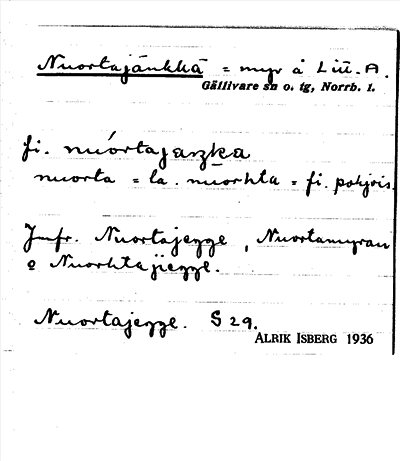 Nuortajänkkä = myr å Lill. A.
Gällivare sn o. tg, Norrb. l.
fi. nuórtajaŋka
nuorta = la. nuorhta = fi. pohjois.
Jmfr. Nuortajegge, Nuortamyran
o Nuorhtajiegge.
Nuortajegge. S 29.
ALRIK ISBERG 1936